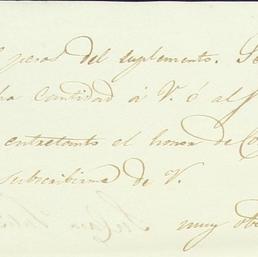 pesos del suplemento. Se
cantidad á V. ó al
entretanto el honor de
subscribirme de V.
muy obe